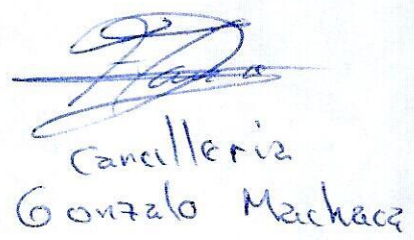 Cancilleria
Gonzalo Machaca